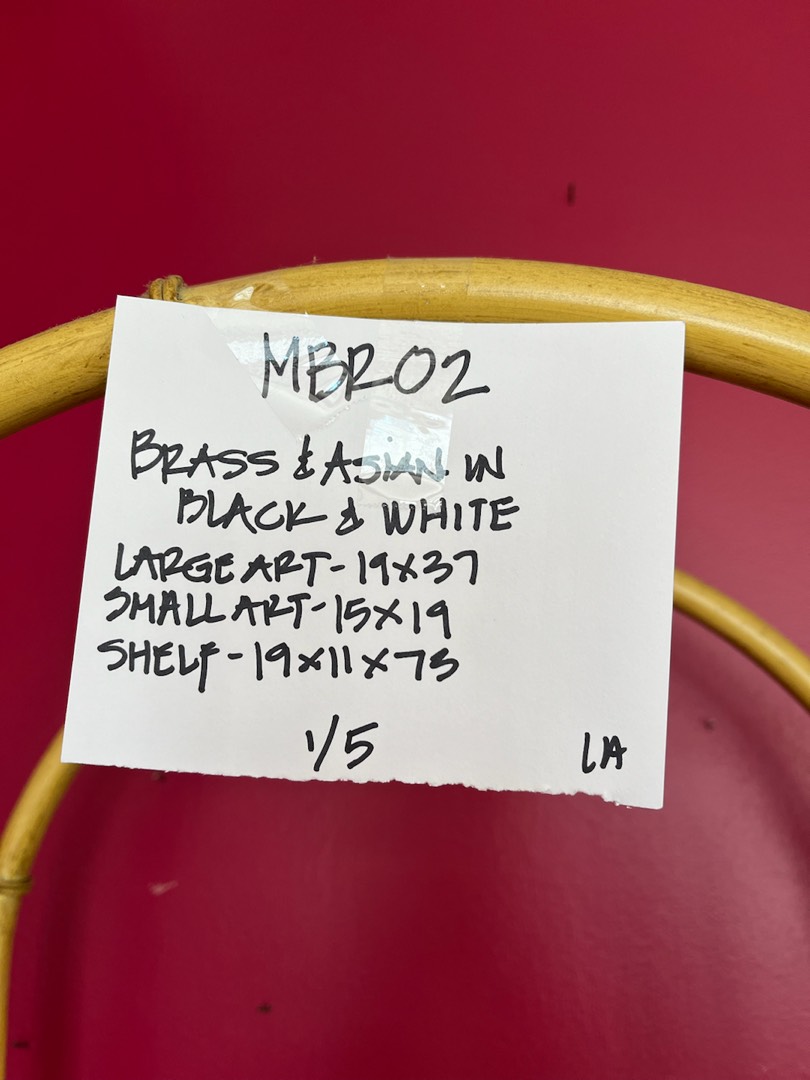 MBR02
BRASS & ASIAN IN
BLACK & WHITE
LARGE ART - 19X37
SMALL ART - 15X19
SHELF - 19X11X73
1/5
LA